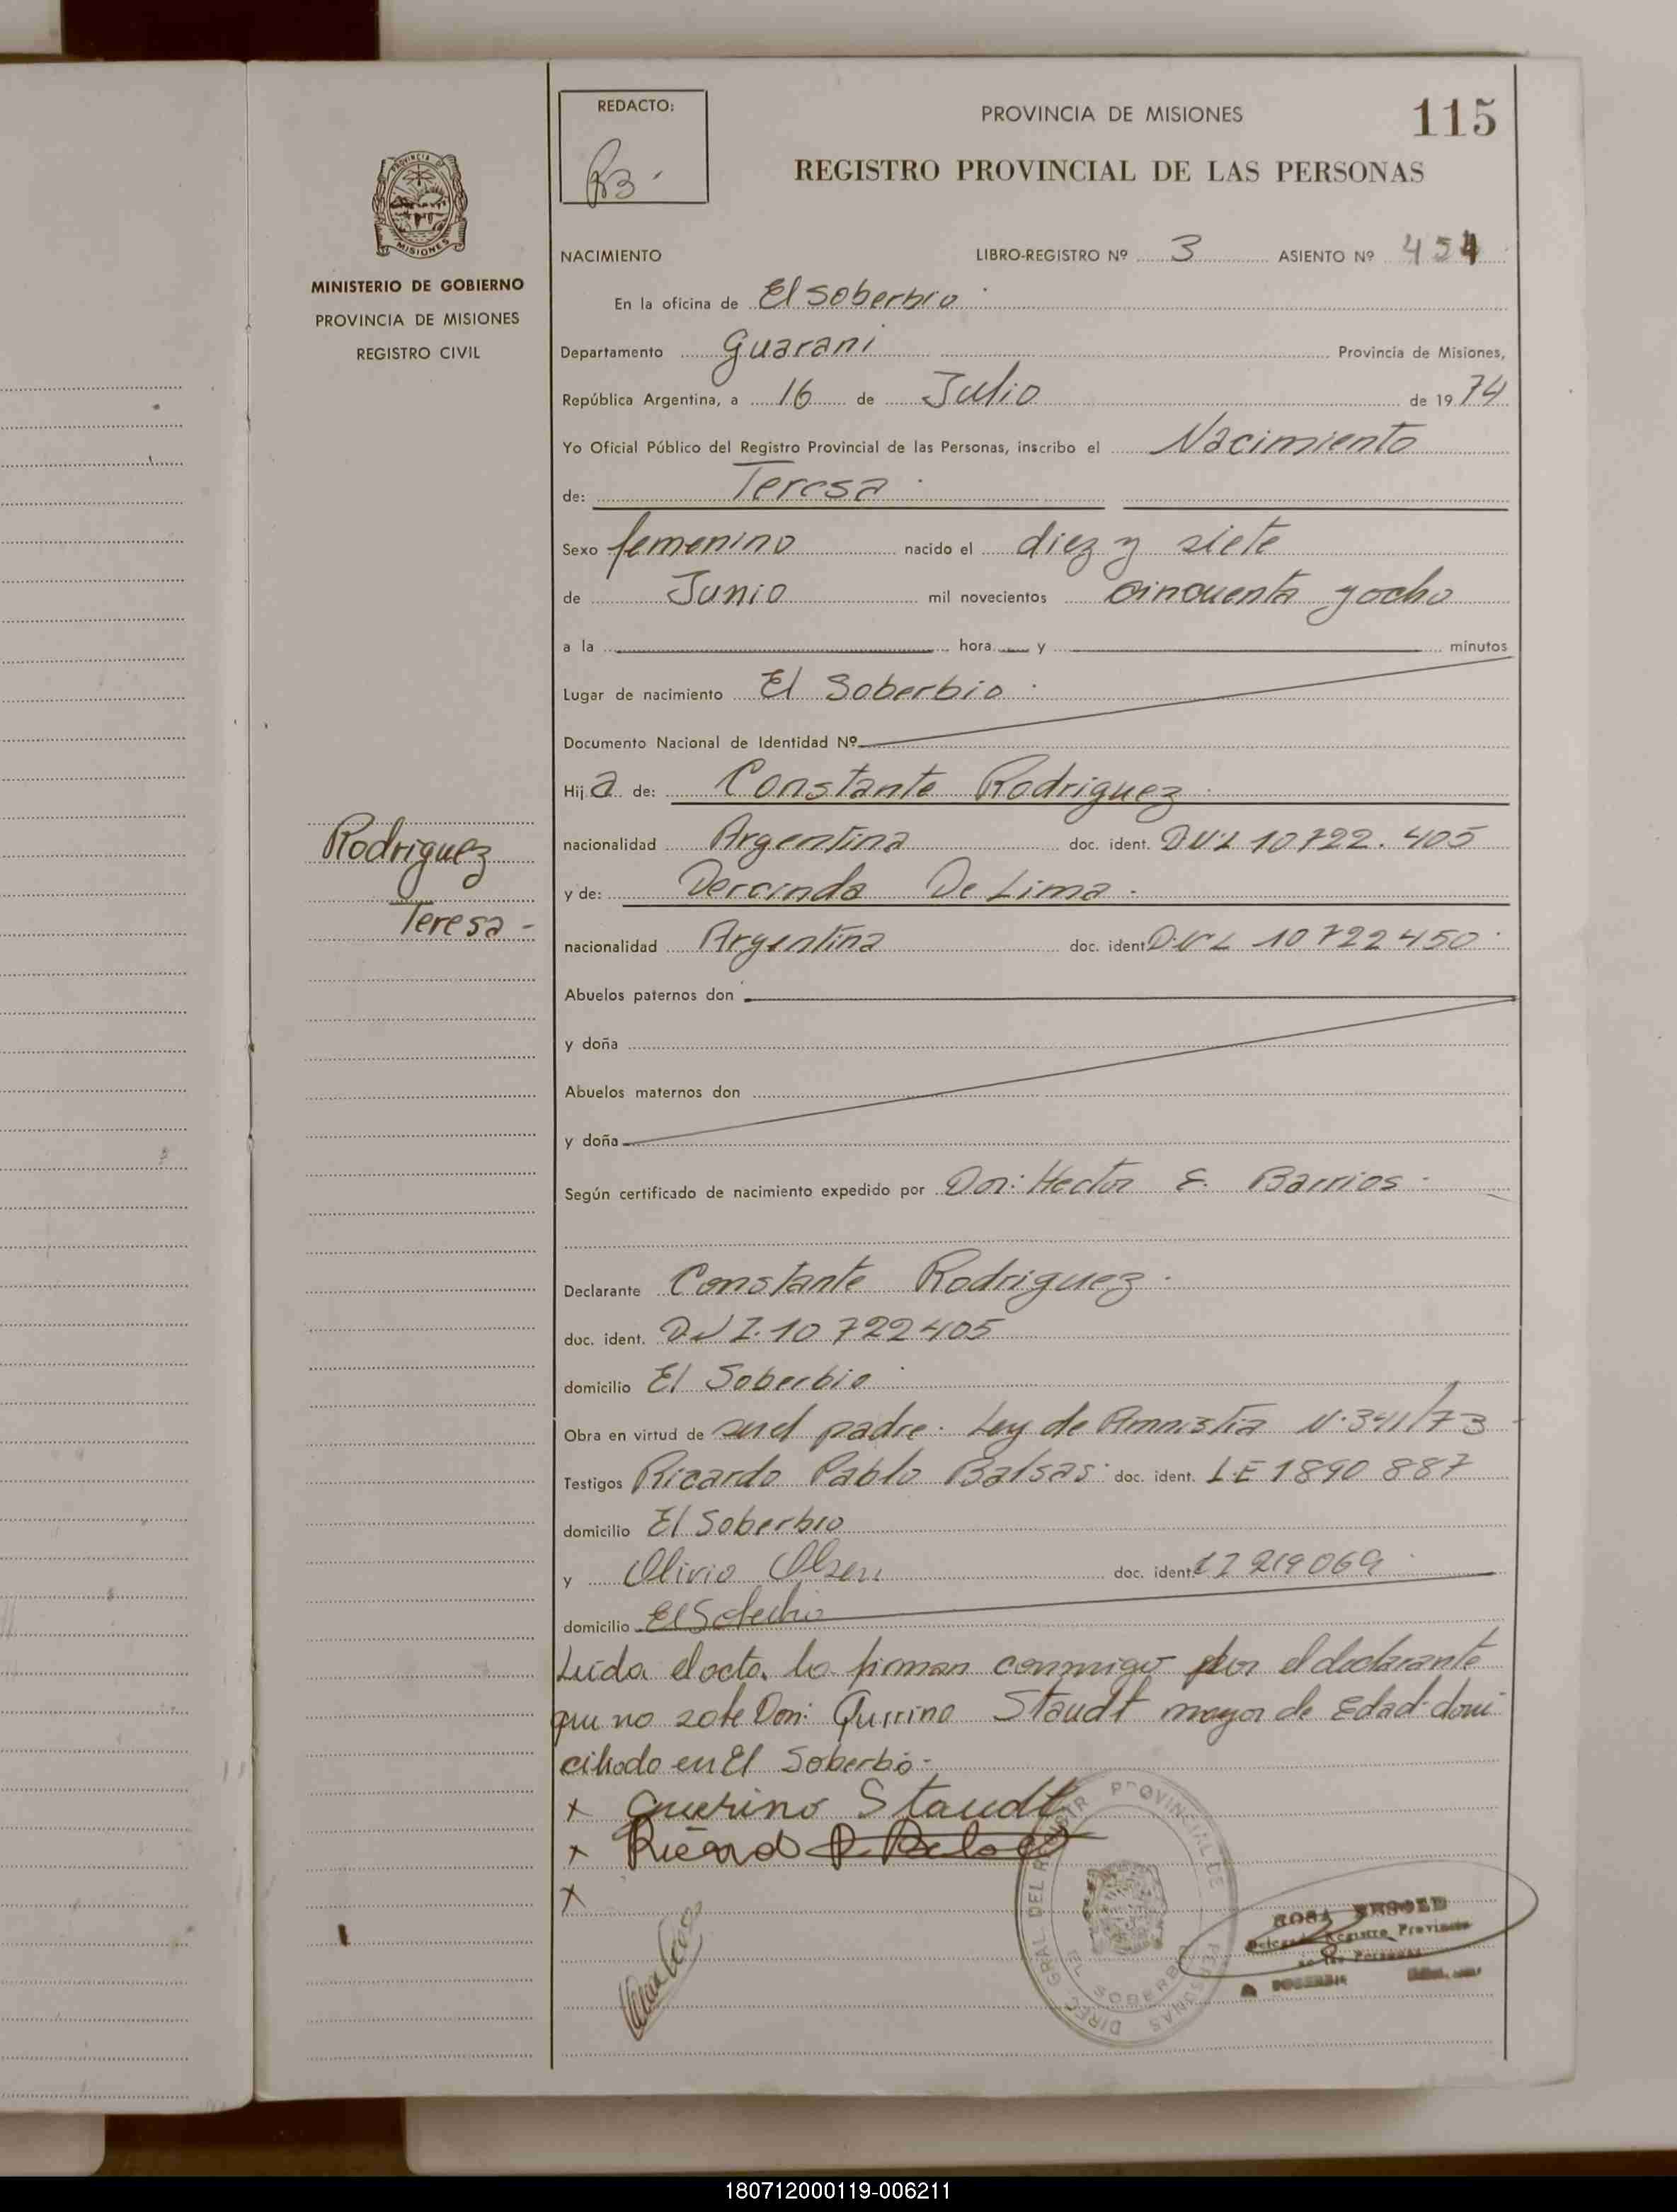 REDACTO:
PROVINCIA DE MISIONES
115
REGISTRO PROVINCIAL DE LAS PERSONAS
PROVINCIA DE
MISIONES
MINISTERIO DE GOBIERNO
PROVINCIA DE MISIONES
REGISTRO CIVIL
NACIMIENTO LIBRO-REGISTRO Nº 3 ASIENTO Nº 454
En la oficina de El Soberbio
Departamento Guarani Provincia de Misiones,
República Argentina, a 16 de Julio de 1974
Yo Oficial Público del Registro Provincial de las Personas, inscribo el Nacimiento
de: Teresa
Sexo femenino nacido el diez y siete
de Junio mil novecientos cincuenta y ocho
a la hora y minutos
Lugar de nacimiento El Soberbio
Documento Nacional de Identidad Nº
Hija de: Constante Rodriguez
nacionalidad Argentina doc. ident. 10722.405
Rodriguez
Teresa -
y de: De Lima
nacionalidad Argentina doc. ident 10722450
Abuelos paternos don
y doña
Abuelos maternos don
y doña
Según certificado de nacimiento expedido por Don: Hector E. Barrios
Declarante Constante Rodriguez
doc. ident. 10722405
domicilio El Soberbio
Obra en virtud de padre. Ley de Amnistia N. 341/73
Testigos Ricardo Pablo Balsas doc. ident. L.E 1890887
domicilio El Soberbio
y Olivio Olsen doc. ident. 219069
domicilio El Soberbio
Leida el acta, la firman conmigo por el declarante
que no sabe Don: Quirino Staudt mayor de Edad domi
ciliado en El Soberbio-
x Guerino Staudt
x Ricardo P. Balsa
x
DIREC. GRAL. DEL REGISTR PROVINCIAL DE PERSONAS
EL SOBERBIO
ROSA
Registro Provincial
de las Personas
180712000119-006211